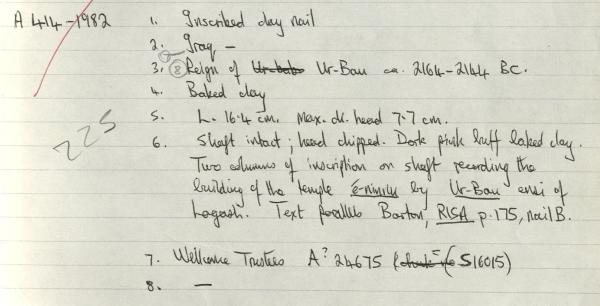 A 414-1982
1. Inscribed clay nail
2. Iraq –
3. (8) Reign of Ur-baba Ur-Bau ca. 2164-2144 BC.
4. Baked clay
5. L. 16.4 cm. Max. di. head 7.7 cm.
225
6. Shaft intact; head chipped. Dark pink buff baked clay.
Two columns of inscription on shaft recording the
building of the temple é-ninnu by Ur-Bau ensi of
Lagash. Text parallels Barton, RISA p.175, nail B.
7. Wellcome Trustees A? 24675 (= S16015)
8. —